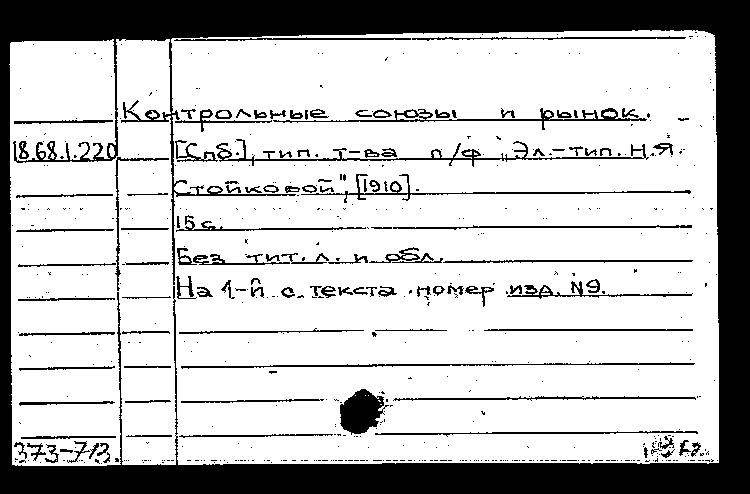 Контрольные союзы и рынок. –
18.68.1.220 [Спб.], тип. т-ва п/ф „Эл.-тип. Н.Я.
Стойковой", [1910].
15 с.
Без тит. л. и обл.
На 1-й с. текста номер изд. №9.
373-713.